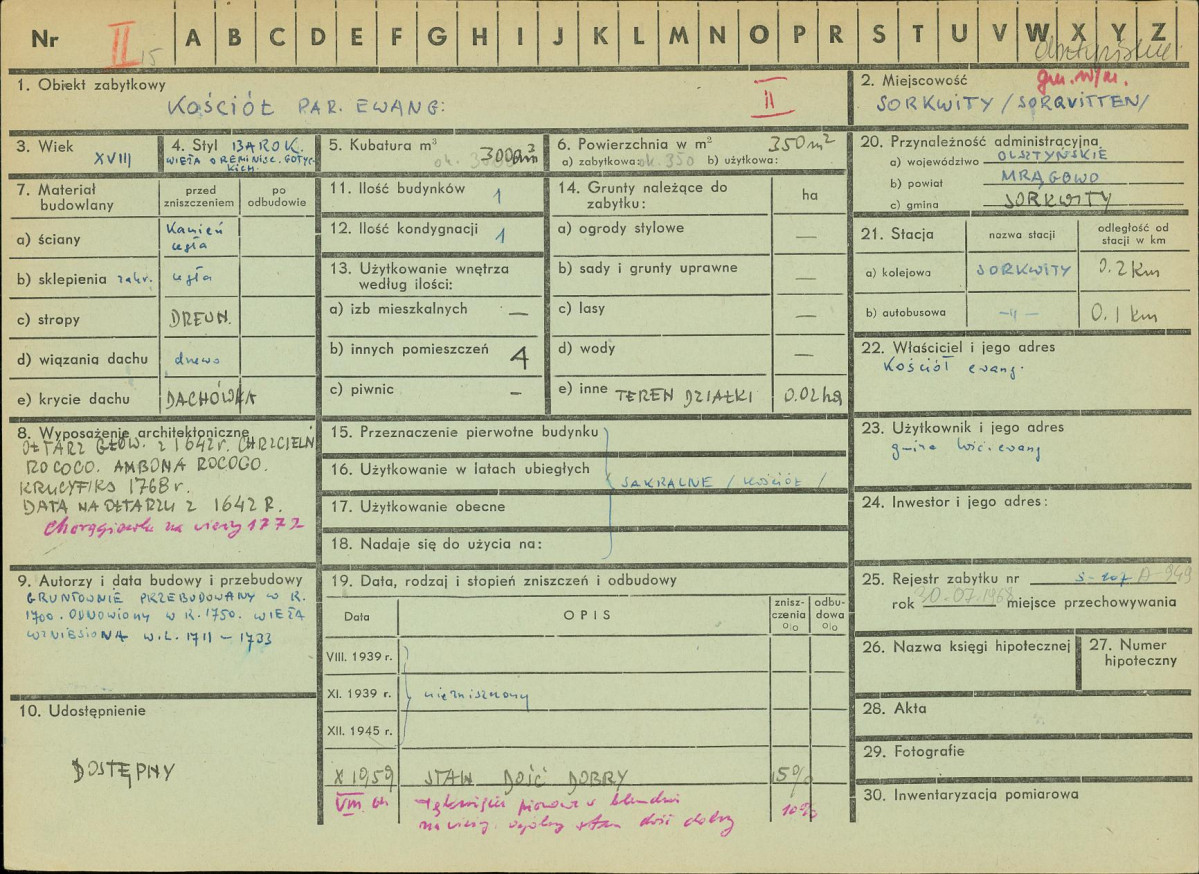 Nr II 15 A B C D E F G H I J K L M N O P R S T U V W X Y Z
1. Obiekt zabytkowy
KOŚCIÓŁ PAR. EWANG:
II
2. Miejscowość
gm. w/m.
SORKWITY /SORQUITTEN/
3. Wiek
XVIII
4. Styl BAROK.
WIEŻA O REMINISC. GOTYC-
KICH.
5. Kubatura m³
300 m³
6. Powierzchnia w m² 350 m²
a) zabytkowa: ok. 350 b) użytkowa:
20. Przynależność administracyjna
a) województwo OLSZTYŃSKIE
b) powiat MRĄGOWO
c) gmina SORKWITY
7. Materiał budowlany
przed zniszczeniem
po odbudowie
a) ściany Kamień cegła
b) sklepienia zakr. cegła
c) stropy DREWN.
d) wiązania dachu drewo
e) krycie dachu DACHÓWKA
11. Ilość budynków 1
12. Ilość kondygnacji 1
13. Użytkowanie wnętrza
według ilości:
a) izb mieszkalnych —
b) innych pomieszczeń 4
c) piwnic -
14. Grunty należące do
zabytku:
ha
a) ogrody stylowe —
b) sady i grunty uprawne —
c) lasy —
d) wody —
e) inne TEREN DZIAŁKI 0.02 ha
21. Stacja
nazwa stacji
odległość od
stacji w km
a) kolejowa SORKWITY 0.2 km
b) autobusowa —„— 0.1 km
22. Właściciel i jego adres
Kościół ewang.
23. Użytkownik i jego adres
gmina kość. ewang
24. Inwestor i jego adres:
8. Wyposażenie architektoniczne
OŁTARZ GŁÓW. z 1642 r. CHRZCIELN.
ROCOCO. AMBONA ROCOCO.
KRUCYFIKS 1768 r.
DATA NA OŁTARZU z 1642 R.
Chorągiewka na wieży 1772
15. Przeznaczenie pierwotne budynku
16. Użytkowanie w latach ubiegłych
SAKRALNE / KOŚCIÓŁ /
17. Użytkowanie obecne
18. Nadaje się do użycia na:
9. Autorzy i data budowy i przebudowy
GRUNTOWNIE PRZEBUDOWANY W R.
1700. ODNOWIONY W R. 1750. WIEŻA
WZNIESIONA W L. 1711 – 1733
10. Udostępnienie
DOSTĘPNY
19. Data, rodzaj i stopień zniszczeń i odbudowy
Data
OPIS
znisz-
czenia
%
odbu-
dowa
%
VIII. 1939 r.
XI. 1939 r. niezniszczony
XII. 1945 r.
X 1959 STAN DOŚĆ DOBRY 5%
pionowe w blendzie 10%
na wieży. ogólny stan dość dobry
25. Rejestr zabytku nr A-949
rok 20.07.1968 miejsce przechowywania
26. Nazwa księgi hipotecznej
27. Numer
hipoteczny
28. Akta
29. Fotografie
30. Inwentaryzacja pomiarowa